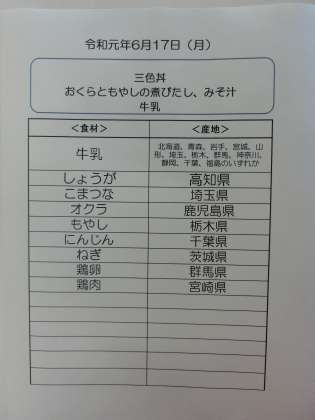 令和元年6月17日（月）
三色丼
おくらともやしの煮びたし、みそ汁
牛乳
＜食材＞ ＜産地＞
牛乳 北海道、青森、岩手、宮城、山
形、埼玉、栃木、群馬、神奈川、
静岡、千葉、福島のいずれか
しょうが 高知県
こまつな 埼玉県
オクラ 鹿児島県
もやし 栃木県
にんじん 千葉県
ねぎ 茨城県
鶏卵 群馬県
鶏肉 宮崎県